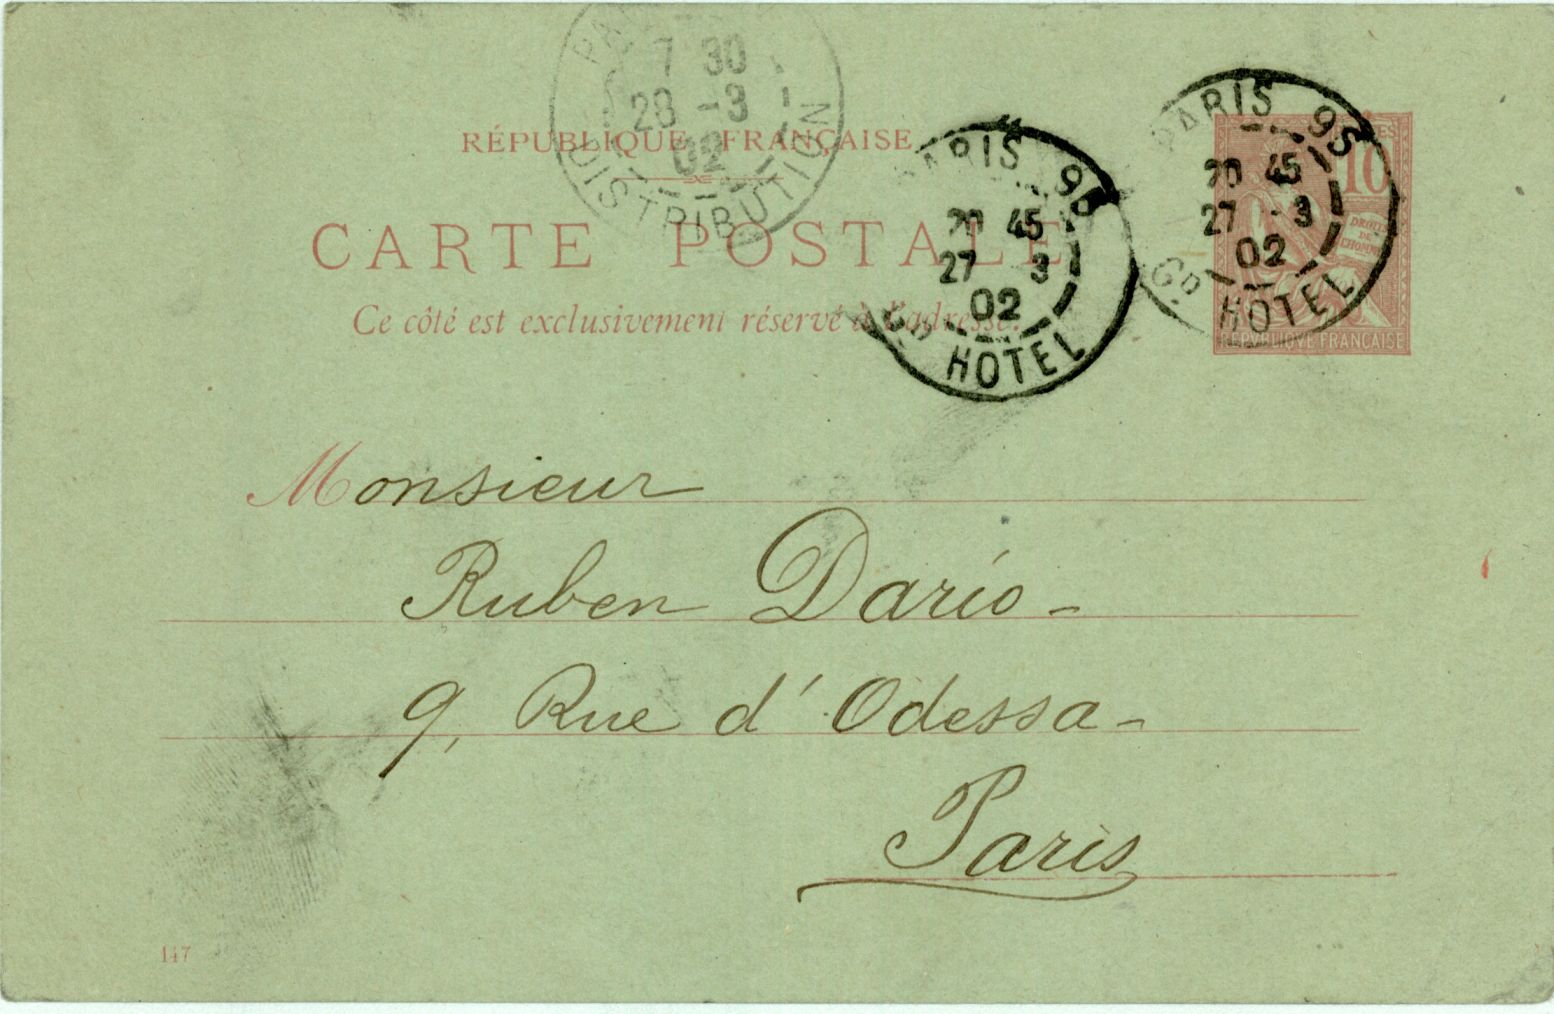 7 30
28 -3
02
DISTRIBUTION
RÉPUBLIQUE FRANÇAISE
CARTE POSTALE
Ce côté est exclusivement réservé à l'adresse.
PARIS 96
20 45
27 3
02
Gd HOTEL
PARIS 96
20 45
27 - 3
02
Gd HOTEL
10
DROITS
DE
L'HOMME
REPVBLIQVE FRANÇAISE
Monsieur
Ruben Darío -
9, Rue d'Odessa -
Paris
147